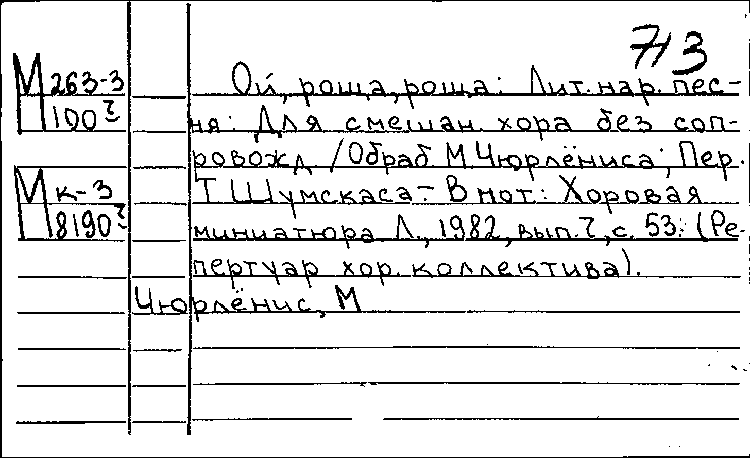 713
М 263-3
100 7
Ой, роща, роща: Лит. нар. пес-
ня: Для смешан. хора без соп-
ровожд. / Обраб. М. Чюрлёниса; Пер.
М К-3
8190 7
Т. Шумскаса. – В нот.: Хоровая
миниатюра. Л., 1982, вып. 7, с. 53. (Ре-
пертуар хор. коллектива).
Чюрлёнис, М